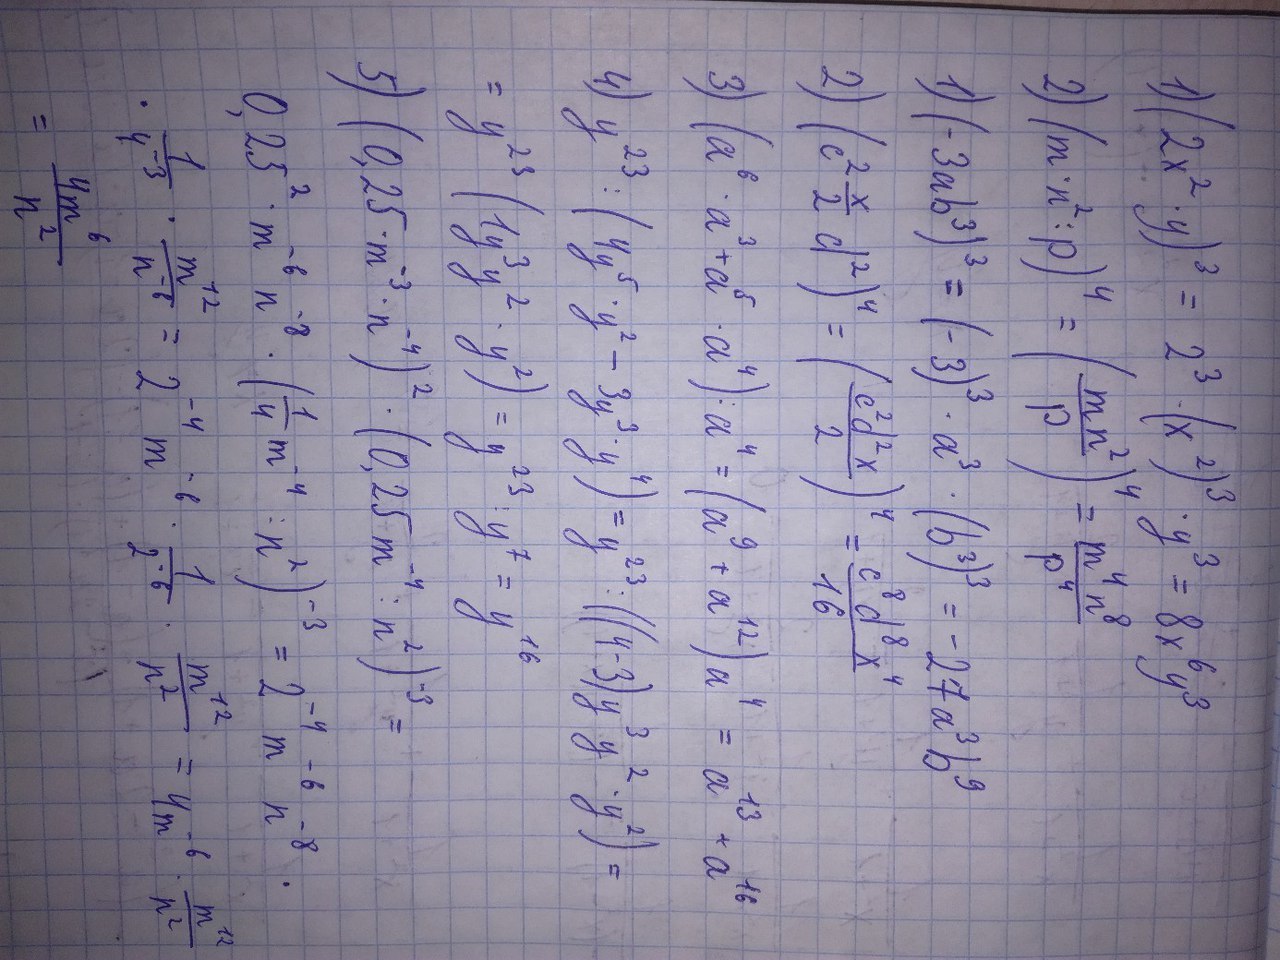 1) (2x² · y)³ = 2³ · (x²)³ · y³ = 8x⁶y³
2) (m · n² : p)⁴ = (mn²/p)⁴ = m⁴n⁸/p⁴
1) (-3ab³)³ = (-3)³ · a³ · (b³)³ = -27a³b⁹
2) (c² x/2 d²)⁴ = (c²d²x/2)⁴ = c⁸d⁸x⁴/16
3) (a⁶ · a³ + a⁸ · a⁴) : a⁴ = (a⁹ + a¹²) a⁴ = a¹³ + a¹⁶
4) y²³ : (4y⁵ · y² - 3y³ · y⁴) = y²³ : ((4-3)y³y² · y²) =
= y²³ (1y³y² · y²) = y²³ : y⁷ = y¹⁶
5) (0,25 · m⁻³ · n⁻⁴)² · (0,25m⁻⁴ : n²)⁻³ =
0,25² · m⁻⁶ n⁻⁸ · (1/4 m⁻⁴ : n²)⁻³ = 2⁻⁴ m⁻⁶ n⁻⁸ ·
· 1/4⁻³ · m¹²/n⁻⁸ = 2⁻⁴ m⁻⁶ · 1/2⁻⁶ · m¹²/n² = 4m⁻⁶ · m¹²/n²
= 4m⁶/n²